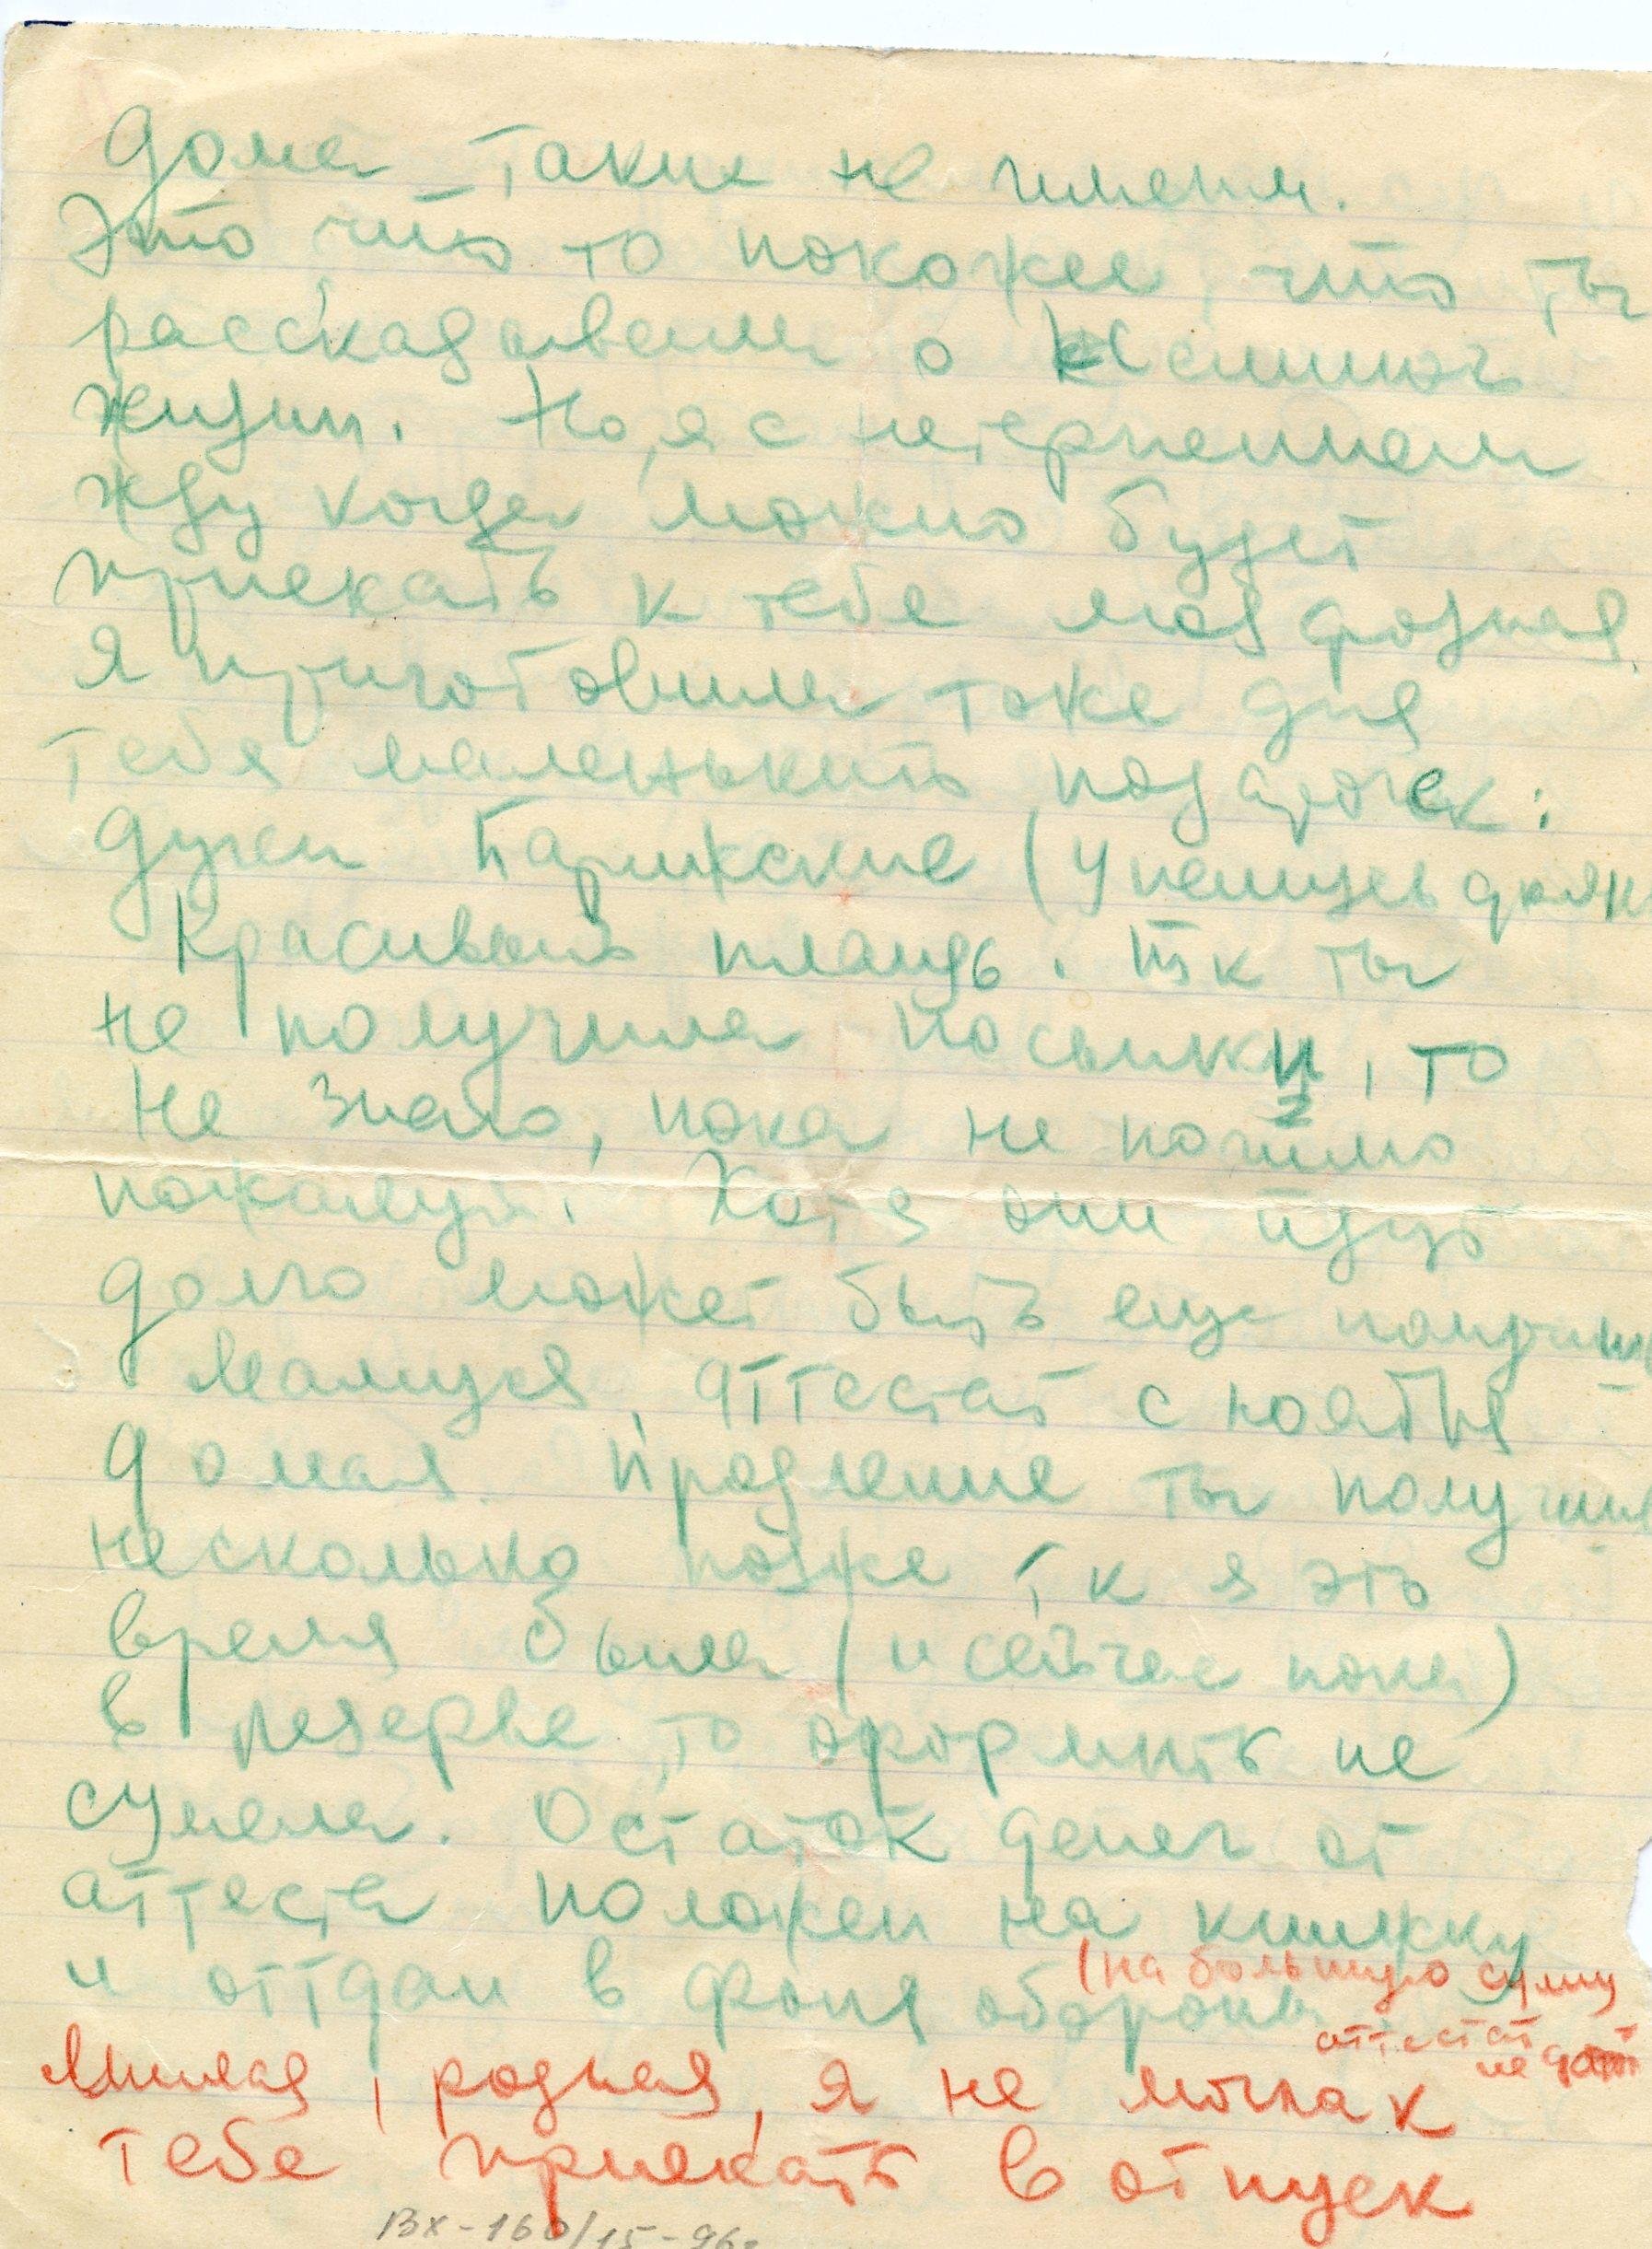 дома такие не имели.
Это что то похожее, что ты
рассказывала о
жизни. Но, я с нетерпением
жду когда можно будет
приехать к тебе моя родная.
Я приготовила тоже для
тебя маленький подарочек:
духи Парижские (у немцев
красивый плащь. тк ты
не получила посылки, то
не знаю, пока не пошлю
пожалуй. Хотя они идут
долго может быть еще получишь
Мамуся, аттестат с ноября
до мая. Продление ты получишь
несколько позже т к я это
время была (и сейчас пока)
в резерве то оформить не
сумела. Остаток денег от
аттеста положен на книжку
и отдан в фонд обороны
(на большую сумму
аттестат
не дают
Милая, родная, я не могла к
тебе приехать в отпуск
Вх-160/15-96г